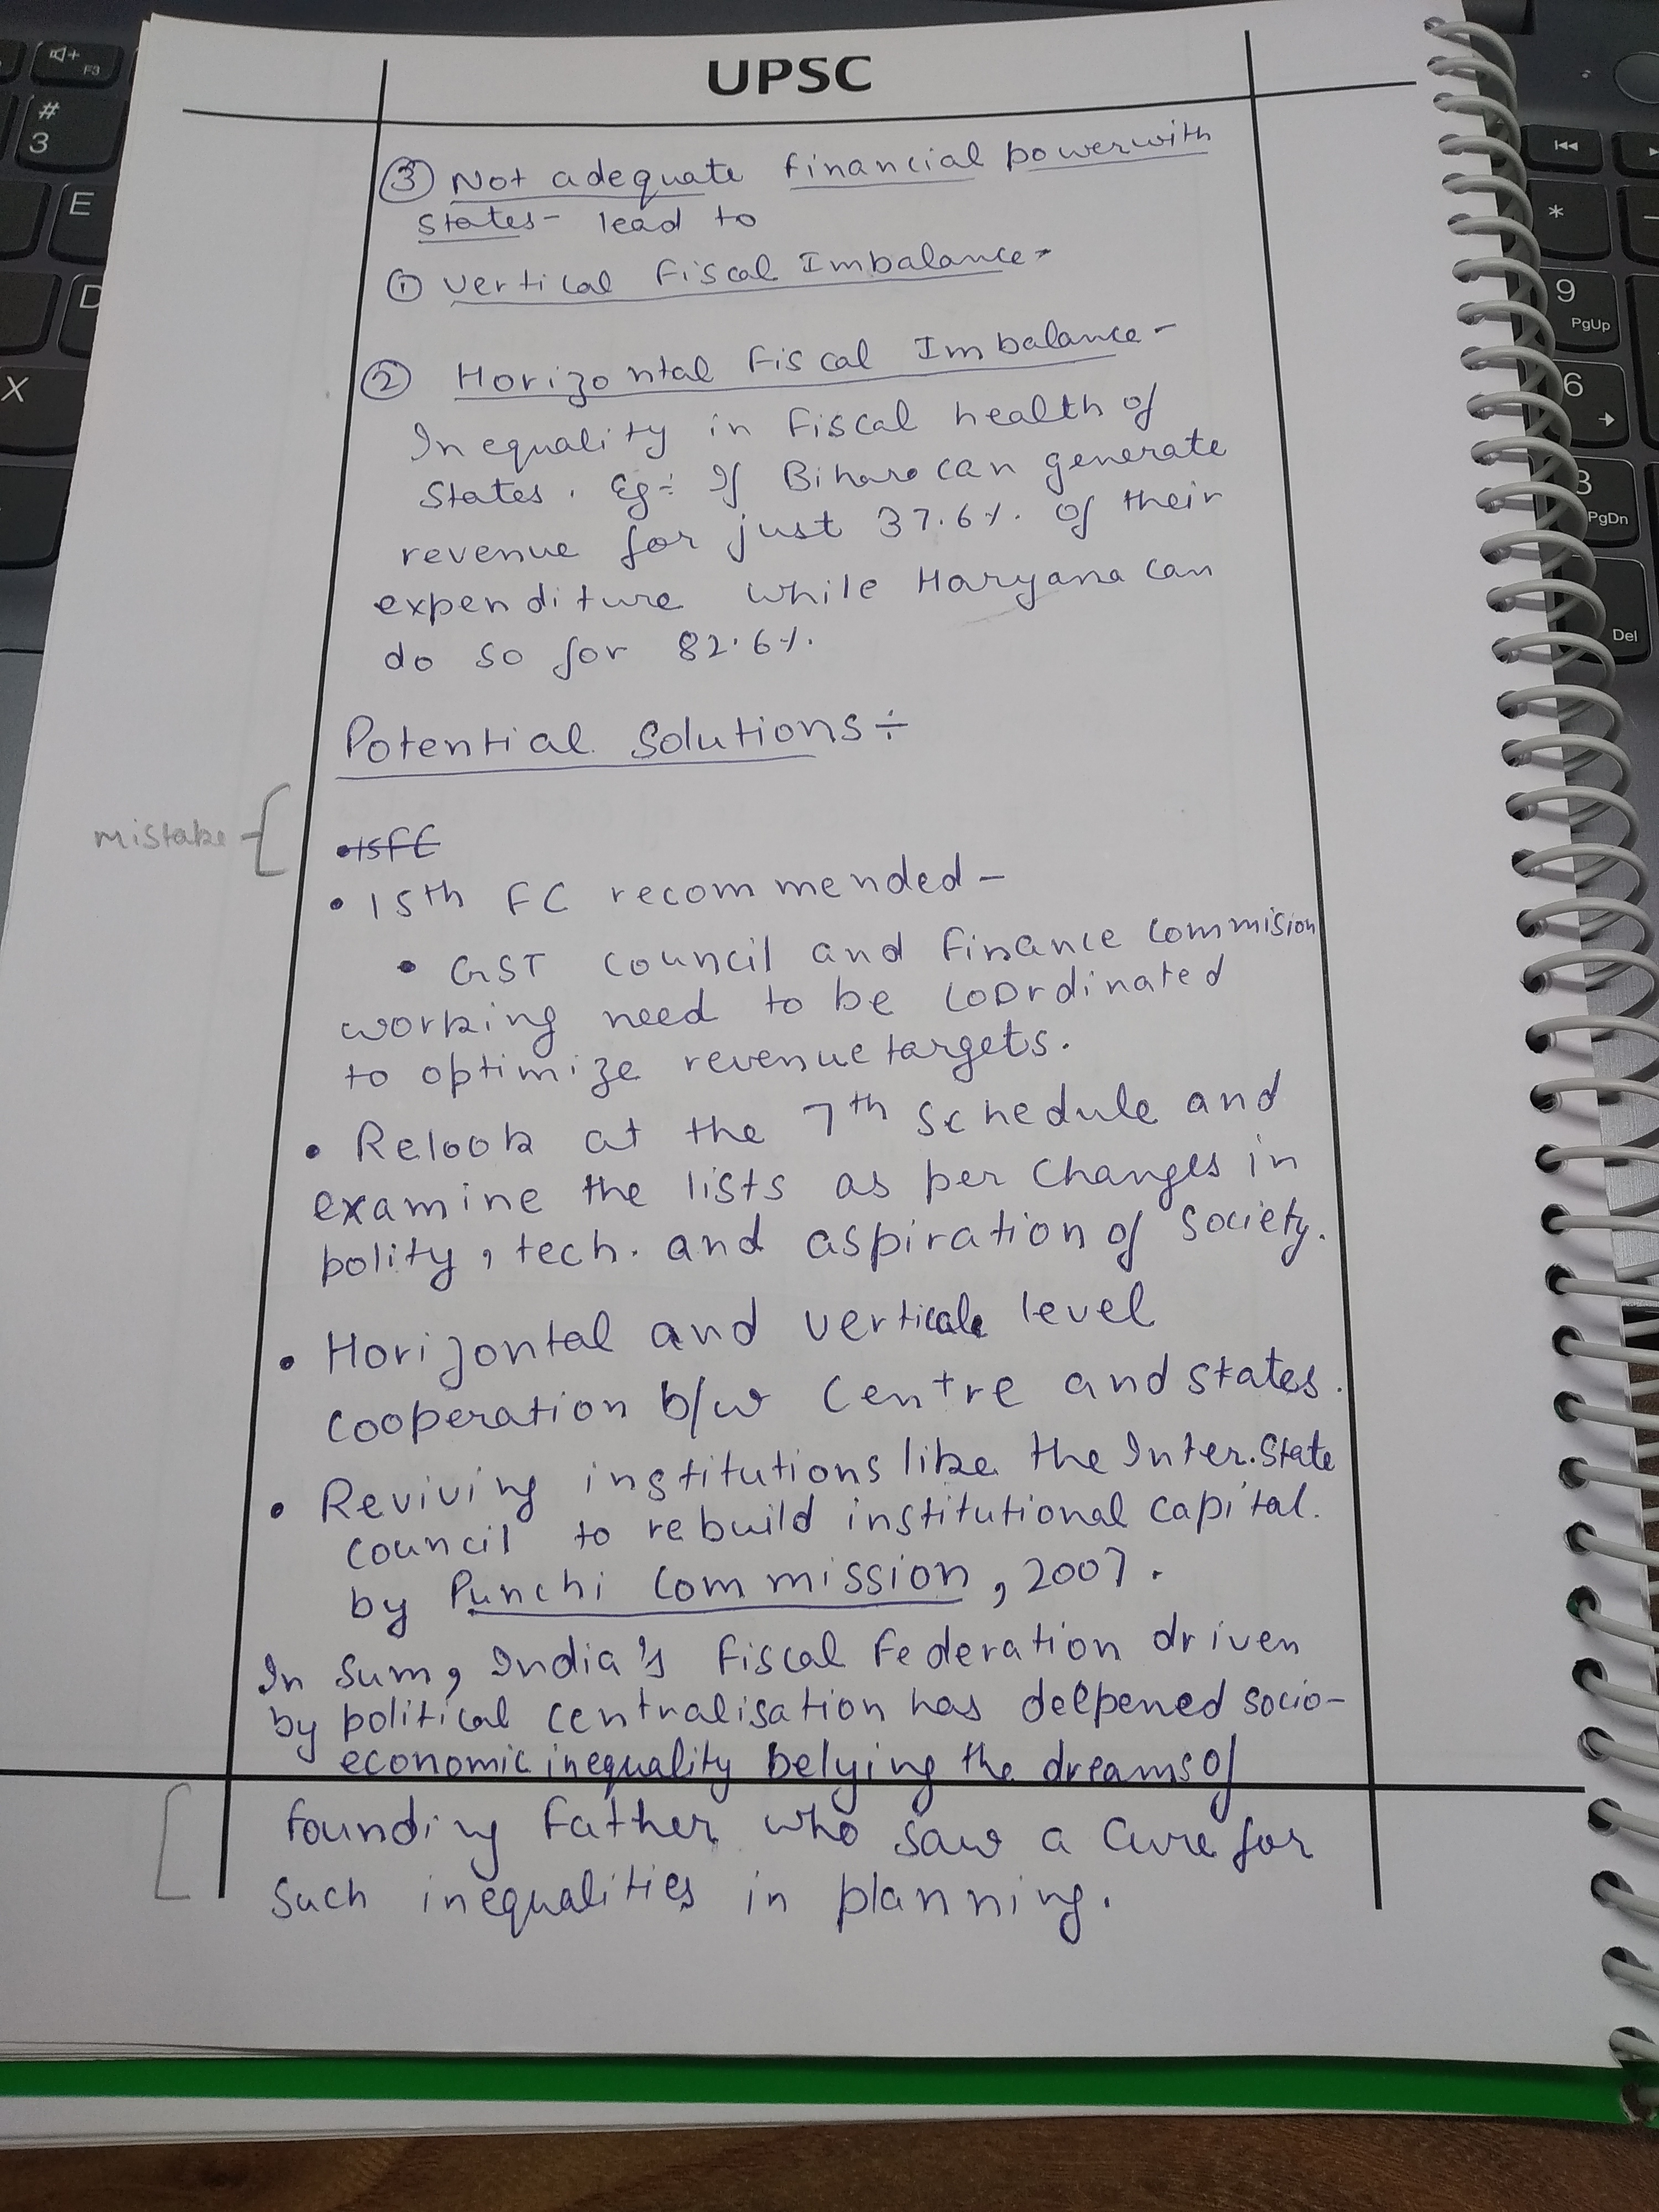 UPSC
③ Not adequate financial power with
states- lead to
① Vertical Fiscal Imbalance-
② Horizontal Fiscal Imbalance-
Inequality in Fiscal health of
States. Eg:- If Bihar can generate
revenue for just 37.6%. of their
expenditure while Haryana can
do so for 82.6%.
Potential Solutions:-
mistake
• 15FC
• 15th FC recommended-
• GST council and Finance Commision
working need to be coordinated
to optimize revenue targets.
• Relook at the 7th schedule and
examine the lists as per changes in
polity, tech. and aspiration of society.
• Horizontal and vertical level
cooperation b/w Centre and states.
• Reviving institutions like the Inter.State
council to rebuild institutional capital.
by Punchi Commission, 2007.
In sum, India's Fiscal Federation driven
by political centralisation has deepened socio-
economic inequality belying the dreams of
founding Father who saw a cure for
such inequalities in planning.
F3
#
3
E
D
X
*
9
PgUp
6
3
PgDn
Del